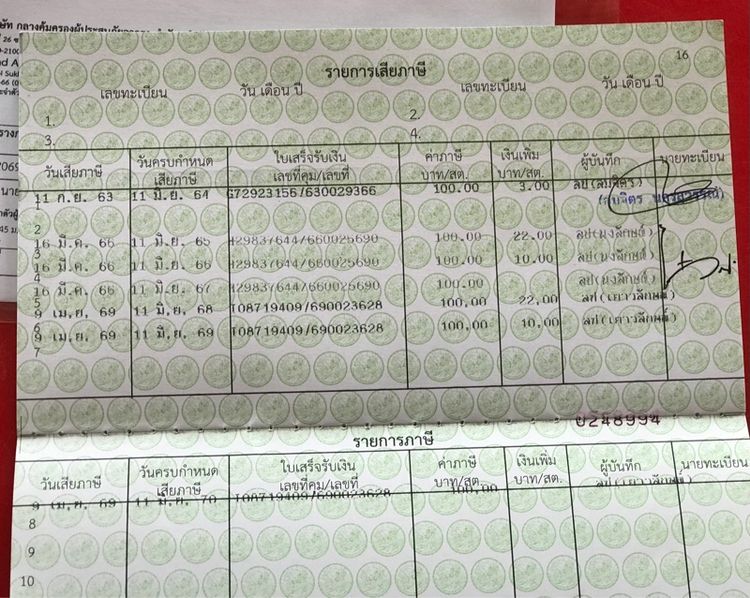 ษัท กลางคุ้มครองผู้ประสบภัยจากรถ
26 ซ
0-2100
nd A
i Sukl
-66 (0
16
รายการเสียภาษี
เลขทะเบียน วัน เดือน ปี เลขทะเบียน วัน เดือน ปี
1. 2.
3. 4.
วันเสียภาษี วันครบกำหนดเสียภาษี ใบเสร็จรับเงิน เลขที่คุม/เลขที่ ค่าภาษี บาท/สต. เงินเพิ่ม บาท/สต. ผู้บันทึก นายทะเบียน
1 11 ก.ย. 63 11 มิ.ย. 64 G72923156/630029366 100.00 3.00 ลป(สมจิตร)
2 16 มี.ค. 66 11 มิ.ย. 65 429837644/660025690 100.00 22.00 ลป(นงลักษณ์)
3 16 มี.ค. 66 11 มิ.ย. 66 429837644/660025690 100.00 10.00 ลป(นงลักษณ์)
4 16 มี.ค. 66 11 มิ.ย. 67 429837644/660025690 100.00 ลป(นงลักษณ์)
5 9 เม.ย. 69 11 มิ.ย. 68 T08719409/690023628 100.00 22.00 ลป(เยาวลักษณ์)
6 9 เม.ย. 69 11 มิ.ย. 69 T08719409/690023628 100.00 10.00 ลป(เยาวลักษณ์)
7
0248994
รายการภาษี
วันเสียภาษี วันครบกำหนดเสียภาษี ใบเสร็จรับเงิน เลขที่คุม/เลขที่ ค่าภาษี บาท/สต. เงินเพิ่ม บาท/สต. ผู้บันทึก นายทะเบียน
9 เม.ย. 69 11 มิ.ย. 70 T08719409/690023628 100.00 ลป(เยาวลักษณ์)
8
9
10